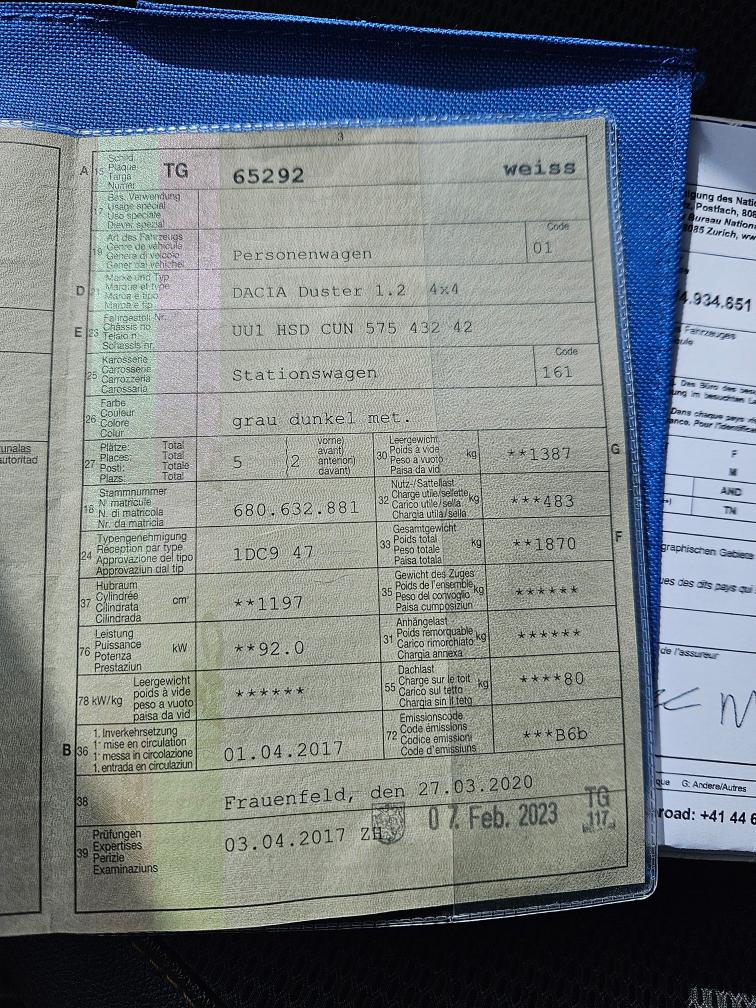 3
A 15 Schild Plaque Targa Numer TG 65292 weiss
17 Bes. Verwendung
Usage spécial
Uso speciale
Diever. spezial
19 Art des Fahrzeugs
Genre de véhicule
Genere di veicolo
Gener dal vehichel
Personenwagen
Code
01
D 21 Marke und Typ
Marque et type
Marca e tipo
Marca e tip
DACIA Duster 1.2 4x4
E 23 Fahrgestell Nr.
Châssis no
Telaio n.
Schassis nr.
UU1 HSD CUN 575 432 42
25 Karosserie
Carrosserie
Carrozzeria
Carossaria
Stationswagen
Code
161
26 Farbe
Couleur
Colore
Colur
grau dunkel met.
27 Plätze: Total
Places: Total
Posti: Totale
Plazs: Total
5 (2
vorne)
avant)
anteriori)
davant)
30 Leergewicht
Poids à vide
Peso a vuoto
Paisa da vid
kg
**1387
G
18 Stammnummer
N° matricule
N. di matricola
Nr. da matricla
680.632.881
32 Nutz-/Sattellast
Charge utile/sellette
Carico utile/sella
Chargia utila/sella
kg
***483
24 Typengenehmigung
Réception par type
Approvazione del tipo
Approvaziun dal tip
1DC9 47
33 Gesamtgewicht
Poids total
Peso totale
Paisa totala
kg
**1870
F
37 Hubraum
Cylindrée
Cilindrata
Cilindrada
cm³
**1197
35 Gewicht des Zuges
Poids de l'ensemble
Peso del convoglio
Paisa cumposiziun
kg
******
76 Leistung
Puissance
Potenza
Prestaziun
kW
**92.0
31 Anhängelast
Poids remorquable
Carico rimorchiato
Chargia annexa
kg
******
78 kW/kg
Leergewicht
poids à vide
peso a vuoto
paisa da vid
******
55 Dachlast
Charge sur le toit
Carico sul tetto
Chargia sin il tetg
kg
****80
B 36 1. Inverkehrsetzung
1ʳᵉ mise en circulation
1ª messa in circolazione
1. entrada en circulaziun
01.04.2017
72 Emissionscode
Code émissions
Codice emissioni
Code d'emissiuns
***B6b
38 Frauenfeld, den 27.03.2020
39 Prüfungen
Expertises
Perizie
Examinaziuns
03.04.2017 ZH
07. Feb. 2023
TG
117
unalas
autoritad
Postfach,
Bureau
8085 Zurich,
4.934.651
Fahrzeuges
F
M
AND
TN
graphischen Gebiete
des dits pays qui
de l'assureur
G: Andere/Autres
road: +41 44 6